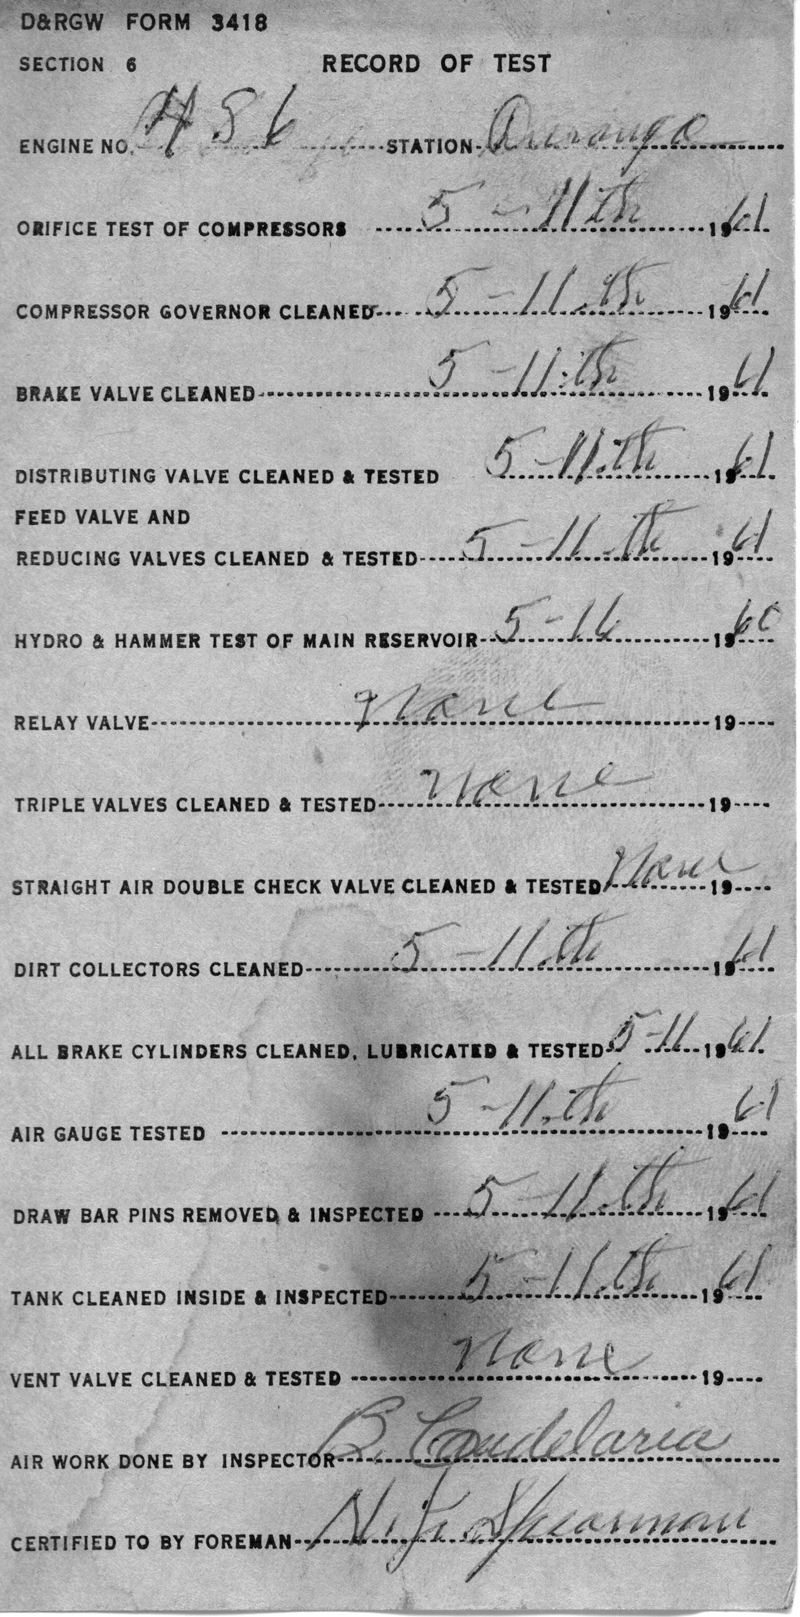 D&RGW FORM 3418
SECTION 6 RECORD OF TEST
ENGINE NO. 486 STATION Durango
ORIFICE TEST OF COMPRESSORS 5-11th 1961
COMPRESSOR GOVERNOR CLEANED 5-11th 1961
BRAKE VALVE CLEANED 5-11th 1961
DISTRIBUTING VALVE CLEANED & TESTED 5-11th 1961
FEED VALVE AND
REDUCING VALVES CLEANED & TESTED 5-11th 1961
HYDRO & HAMMER TEST OF MAIN RESERVOIR 5-16 1960
RELAY VALVE None 19
TRIPLE VALVES CLEANED & TESTED None 19
STRAIGHT AIR DOUBLE CHECK VALVE CLEANED & TESTED None 19
DIRT COLLECTORS CLEANED 5-11th 1961
ALL BRAKE CYLINDERS CLEANED, LUBRICATED & TESTED 5-11 1961
AIR GAUGE TESTED 5-11th 1961
DRAW BAR PINS REMOVED & INSPECTED 5-11th 1961
TANK CLEANED INSIDE & INSPECTED 5-11th 1961
VENT VALVE CLEANED & TESTED None 19
AIR WORK DONE BY INSPECTOR B. Candelaria
CERTIFIED TO BY FOREMAN Spearman